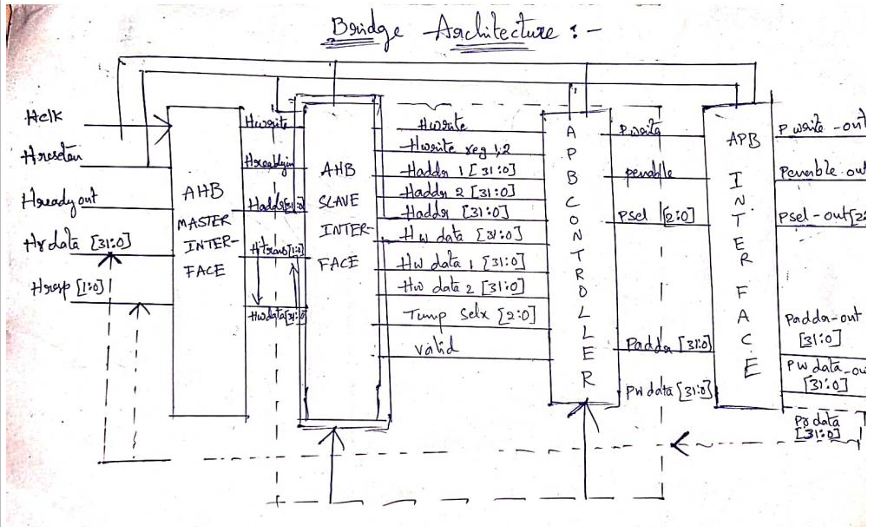 Bridge Architecture :-
Hclk
Hresetn
Hreadyout
Hrdata [31:0]
Hresp [1:0]
AHB
MASTER
INTER-
FACE
Hwrite
Hreadyin
Haddr[31:0]
Htrans[1:0]
Hwdata[31:0]
AHB
SLAVE
INTER-
FACE
Hwrite
Hwrite reg 1,2
Haddr 1 [31:0]
Haddr 2 [31:0]
Haddr [31:0]
Hw data [31:0]
Hw data 1 [31:0]
Hw data 2 [31:0]
Temp Selx [2:0]
valid
APB CONTROLLER
Pwrite
penable
Psel [2:0]
Paddr [31:0]
Pw data [31:0]
APB
INTERFACE
Pwrite-out
Penable-out
Psel-out[2:
Paddr-out
[31:0]
Pw data-ou
[31:0]
Pr data
[31:0]